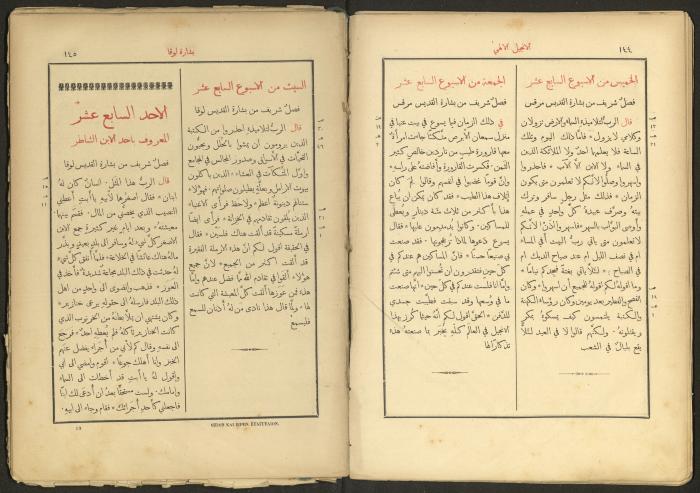 ١٤٤
الانجيل الالهي
الخميس من الاسبوع السابع عشر
فصلٌ شريف من بشارة القديس مرقس
قال الرب لتلاميذهِ السماء والارض تزولان
وكلامي لا يزول * فامَّا ذلك اليوم وتلك
الساعة فلا يعلمهما احدٌ ولا الملائكة الذين
في السماء ولا الابن الَّا الآب * فاحذروا
واسهروا وصلُّوا لأنكم لا تعلمون متى يكون
الزمان * فذلك مثل رجلٍ سافر وترك
بيتهُ وصرَّف عبيدهُ كلَّ واحدٍ في عمله
وأوصى البوَّاب بالسهر * فاسهروا اذًا لانكم
لا تعلمون متى يأتي ربُّ البيت أفي المساء
ام في نصف الليل ام عند صياح الديك ام
في الصباح * لئلَّا يأتي بغتةً فيجدكم نيامًا *
وما أقولهُ لكم اقولهُ للجميع أن اسهروا * وكان
الفصح والفطير بعد يومين وكان رؤساء الكهنة
والكتبة يلتمسون كيف يمسكونهُ بمكرٍ
ويقتلونهُ * ولكنهم قالوا لا في العيد لئلَّا
يقع بلبالٌ في الشعب
الجمعة من الاسبوع السابع عشر
فصلٌ شريف من بشارة القديس مرقس
في ذلك الزمان فيما يسوع في بيت عنيا في
منزل سمعان الأبرص متَّكئًا جاءت امرأةٌ
معها قارورة طيب من ناردين خالص كثير
الثمن * فكسرت القارورة وأفاضتهُ على رأسهِ *
وإنَّ قومًا غضبوا في انفسهم وقالوا لمَ كان
إتلاف هذا الطيب * فقد كان يمكن أن يُباع
هذا بأكثر من ثلاث مئة دينارٍ ويُعطى
للمساكين * وكانوا يتذمرون عليها * فقال
يسوع دعوها لماذا تزعجونها * فقد صنعت
بي صنيعًا حسنًا * فانَّ المساكين هم عندكم في
كل حين فتقدرون ان تحسنوا اليهم متى شئتم
وامَّا انا فلست عندكم في كل حين * انها صنعت
ما في وسعها وقد سبقت فطيَّبت جسدي
للدفن * الحقَّ اقول لكم انهُ حيثما كُرز بهذا
الانجيل في العالم كلّهِ يُخبَر بما صنعتهُ هذه
تذكارًا لها
١٤٥
بشارة لوقا
السبت من الاسبوع السابع عشر
فصلٌ شريف من بشارة القديس لوقا
قال الربُّ لتلاميذهِ احذروا من الكتبة
الذين يرومون أن يمشوا بالحُلَل ويحبُّون
التحيَّات في الأسواق وصدور المجالس في المجامع
واوَّل المتَّكآت في العشاء * الذين يأكلون
بيوت الارامل وبعلَّة يطيلون صلواتهم * فهؤلاء
ستنالهم دينونةٌ أعظم * ولاحظ فرأى الاغنياء
الذين يلقون تقادمهم في الخزانة * فرأى ايضًا
ارملةً مسكينةً قد ألقت هناك فلسين * فقال
في الحقيقة اقول لكم انَّ هذه الارملة الفقيرة
قد ألقت اكثر من الجميع * لانَّ جميع
هؤلاء ألقوا في تقادم الله ممَّا فضل عندهم وامَّا
هذه فمن عوزها ألقت كلَّ المعيشة التي كانت
لها * ولمَّا قال هذا نادى من لهُ أذنان للسمع
فليسمع
الاحد السابع عشر
المعروف باحد الابن الشاطر
فصلٌ شريف من بشارة القديس لوقا
قال الربُّ هذا المثل * انسانٌ كان لهُ
ابنان * فقال اصغرهما لأبيهِ يا أبتِ أعطني
النصيب الذي يخصُّني من المال * فقسم بينهما
معيشتهُ * وبعد ايام غير كثيرة جمع الابن
الاصغر كلَّ شيءٍ لهُ وسافر الى بلدٍ بعيدٍ وبذَّر
مالهُ هناك عائشًا في الخلاعة * فلمَّا أنفق كلَّ شيءٍ
لهُ حدثت في ذلك البلد مجاعةٌ شديدةٌ فأخذ في
العوز * فذهب وانضوى الى واحدٍ من اهل
ذلك البلد فارسلهُ الى حقولهِ يرعى خنازير *
وكان يشتهي ان يملأ بطنهُ من الخرنوب الذي
كانت الخنازير تأكلهُ فلم يُعطِهِ احدٌ * فرجع
الى نفسهِ وقال كم لأبي من أجراء يفضل عنهم
الخبز وانا أهلك جوعًا * أقوم وامضي الى ابي
واقول لهُ يا أبتِ قد أخطأت الى السماء
وامامك * ولست مستحقًّا بعدُ ان أُدعى لك ابنًا
فاجعلني كأحد أُجرائك * فقام وجاء الى ابيهِ *
19